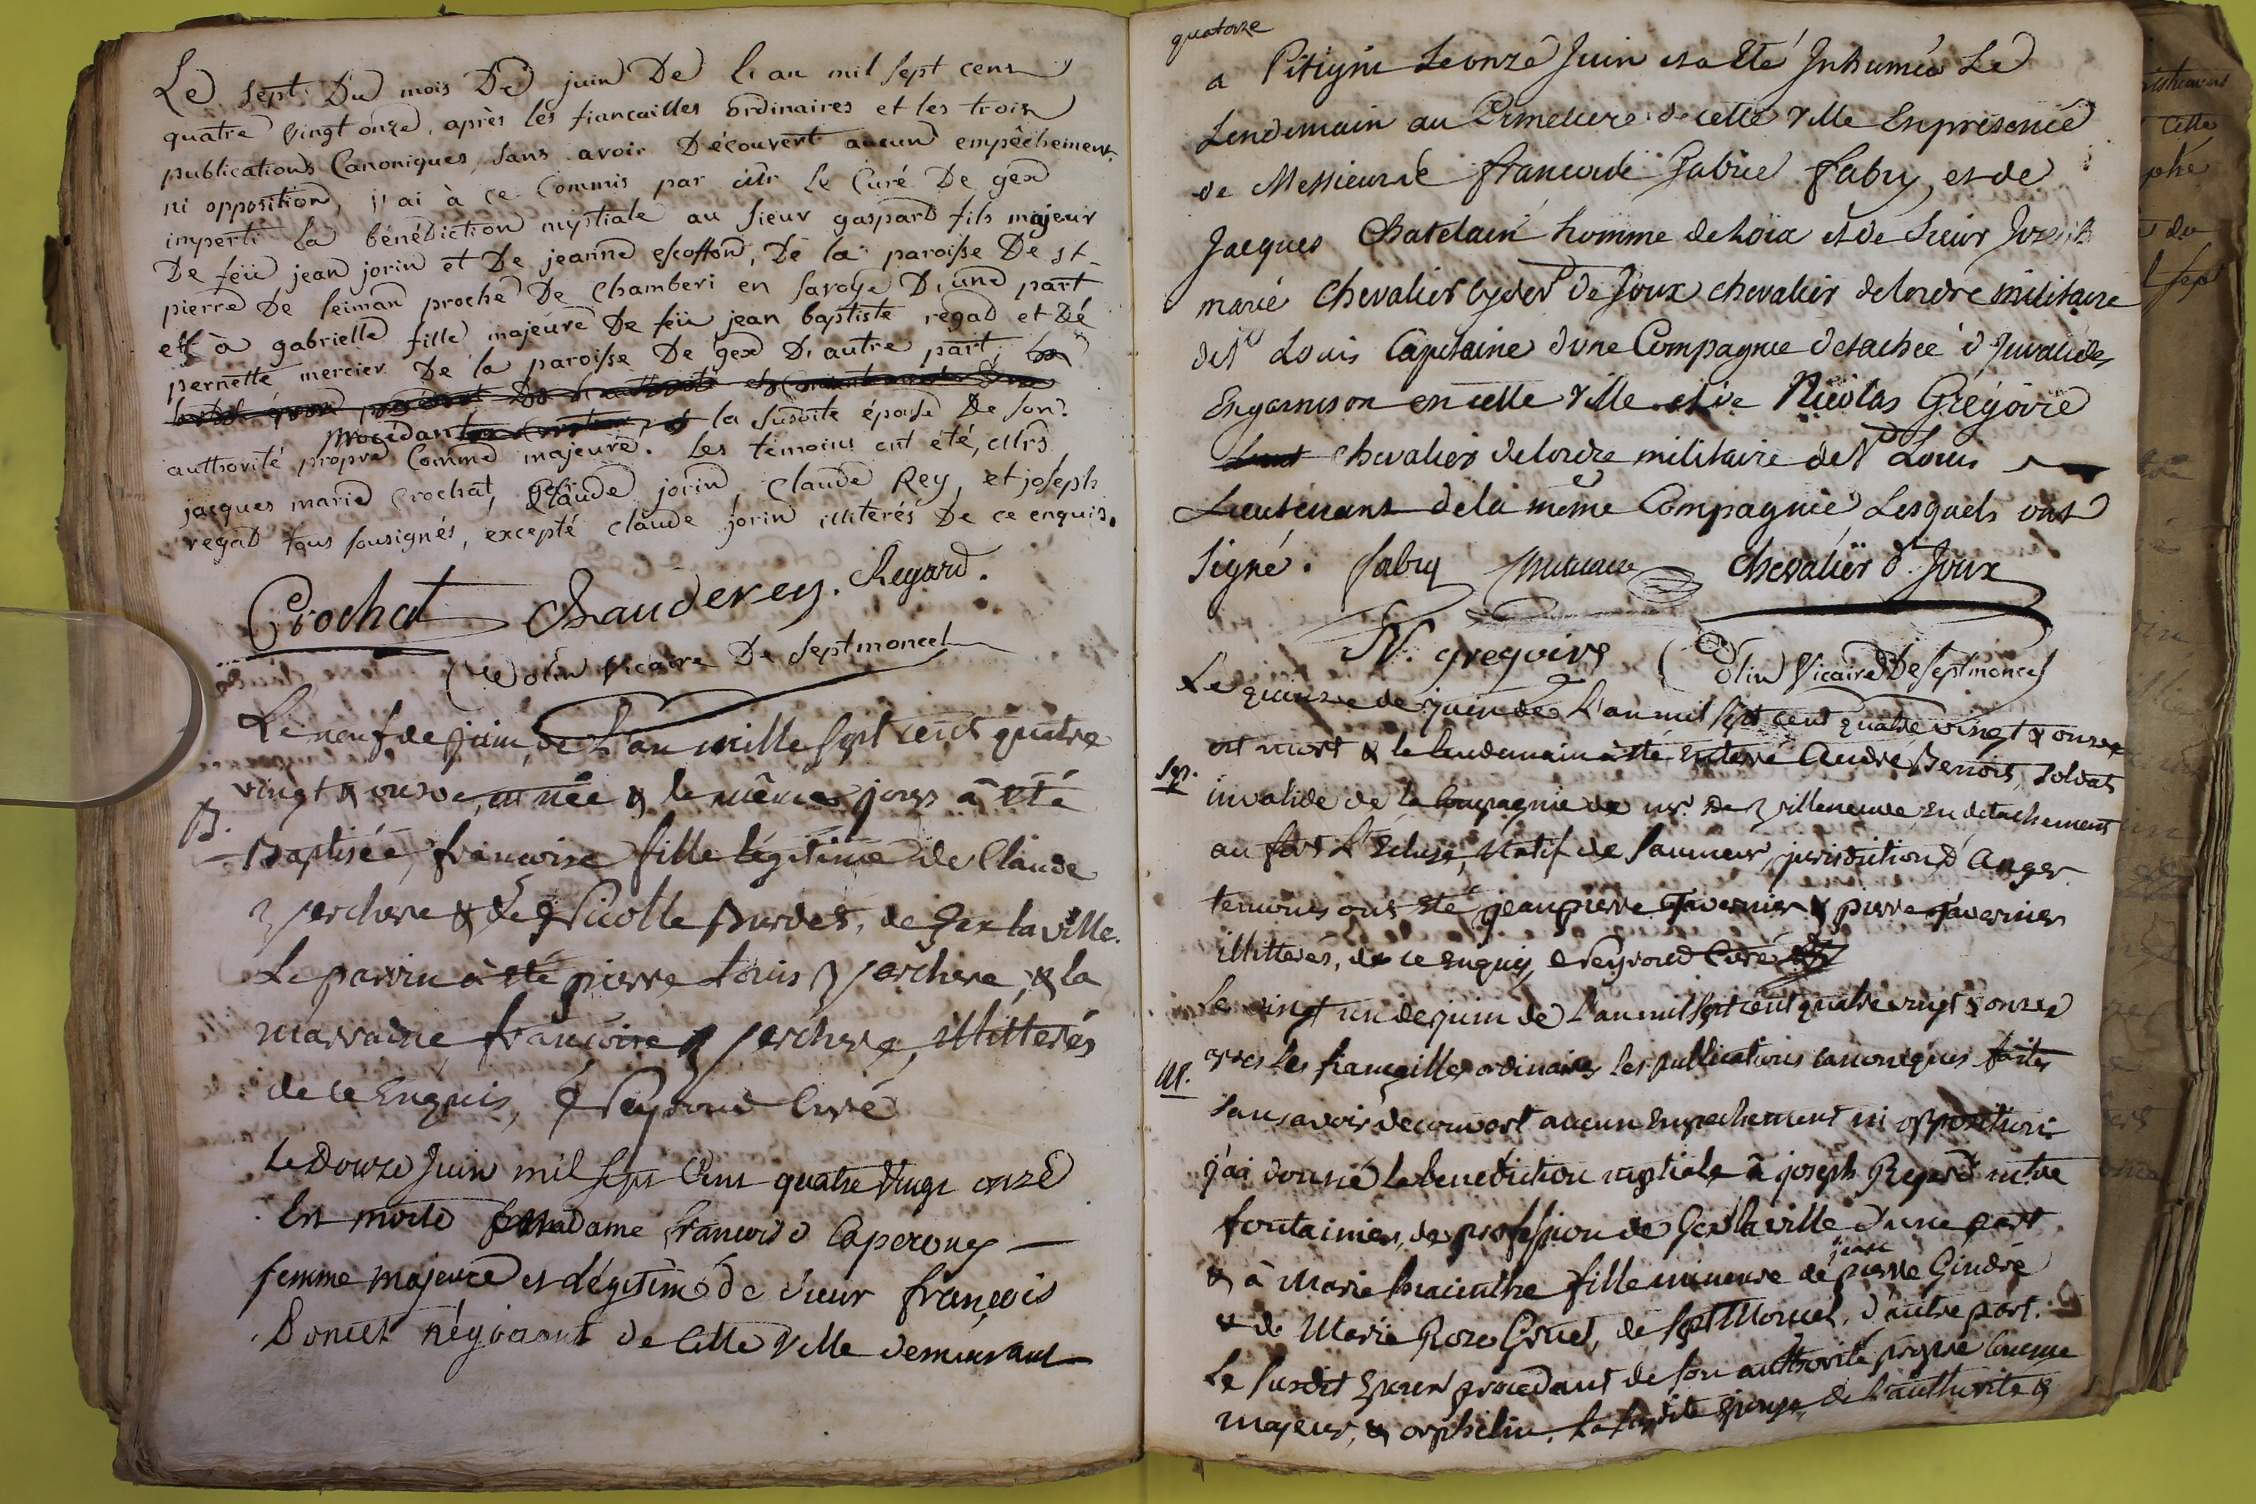 Le sept Du mois De juin De l'an mil sept cens
quatre vingt onze, après les fiancailles ordinaires et les trois
publications Canoniques, sans avoir Découvert aucun empêchement,
ni opposition, j'ai à ce Commis par Le Curé De gex
imperti la bénédiction nuptiale au sieur gaspard fils majeur
De feü jean jorin et De jeanne escoffon, De la paroisse De st-
pierre De leiman proche De Chamberi en Savoye D'une part
et à gabrielle fille majeure De feü jean baptiste regad et De
pernette mercier De la paroisse De gex D'autre part,
procedant la susdite épouse De son
authorité propre Comme majeure. Les temoins ont été,
jacques marie Crochat, Claude jorin, Claude Rey, et joseph
regad tous sousignés, excepté Claude jorin illiterés De ce enquis.
Crochat Chauderey. Regard.
Colin Vicaire De Septmoncel
Le neuf de juin, de L'an mille sept cent quatre
vingt & onze, est née & le même jour à été
B.
Baptisée, francoise fille légitime de Claude
perchere & de Nicolle Burdet, de Gex la ville.
Le parrin à été pierre Louis perchere, & la
marraine francoise perchere, illitterés
de ce Enquis, Peyroud Curé
Le Douze Juin mil sept Cent quatre Vingt onze
Est morte madame francoise Caperony
femme majeure et Légitime de Sieur françois
Doncet Négociant de Cette Ville demeurant
quatorze
a Pitigni Le onze Juin et a Eté Inhumée Le
Lendemain au Cimetiere de cette Ville En présence
de Messieur de francode Gabriel fabry, et de
Jacques Chatelain homme de Loix et de Sieur Joseph
marie Chevalier de Joux chevalier de lordre militaire
de St Louis Capitaine d'une Compagnie détachée d'Invalides
En garnison en cette Ville et de Nicolas Grégoire
Chevalier de lordre militaire de St Louis
Lieutenant de la même Compagnie Lesquels ont
Signé. fabry Chevalier d. Joux
N. gregoire Colin Vicaire De Septmoncel
Le quinze de juin de L'an mil sept cent quatre vingt & onze
est mort & le lendemain à été enterré André Benoit, soldat
Sep.
invalide de la Compagnie de mr. De Villeneuve en detachement
au fort L'Ecluse, Natif de Saumeur, jurisdiction d'Anger
temoins ont été jean pierre Tavernier & pierre Tavernier
illitterés, de ce enquis, Peyroud Curé
Le vingt un de juin de L'an mil sept cent quatre vingt & onze
M.
après les fiancailles ordinaires les publications canoniques faites
sans avoir decouvert aucun empechement ni opposition
j'ai donné la benediction nuptiale à joseph Regard mtre
fontainier, de profession de Gex la ville d'une part
& à Marie hiacinthe fille mineure de jean pierre Gindre
& de Marie Roze Gruet, de Sept Moncel, d'autre part.
Le susdit Epoux procedant de son authorité propre comme
majeur, & orphelin, La susdite Epouse, de l'authorité &